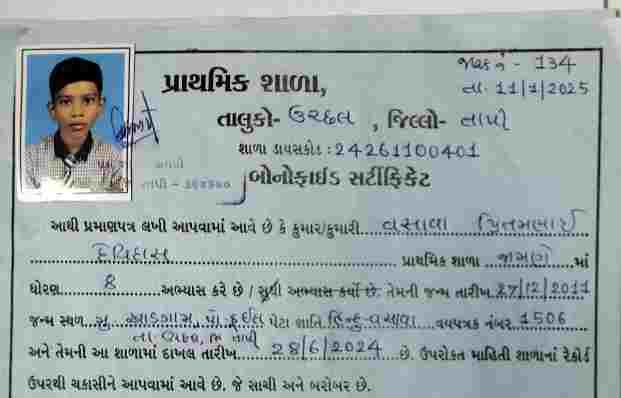 જાવક નં - 134
પ્રાથમિક શાળા,
તા. 11/1/2025
તાલુકો- ઉચ્છલ , જિલ્લો- તાપી
શાળા ડાયસકોડ : 24261100401
બોનોફાઈડ સર્ટીફિકેટ
આથી પ્રમાણપત્ર લખી આપવામાં આવે છે કે કુમાર/કુમારી વસાવા પ્રિતમભાઈ
દેવિદાસ પ્રાથમિક શાળા જામણે માં
ધોરણ 8 અભ્યાસ કરે છે / સુધી અભ્યાસ કર્યો છે. તેમની જન્મ તારીખ 27/12/2011
જન્મ સ્થળ મુ પો પેટા જ્ઞાતિ હિન્દુ-વસાવા વયપત્રક નંબર 1506
તા. જિ તાપી
અને તેમની આ શાળામાં દાખલ તારીખ 28/6/2024 છે. ઉપરોક્ત માહિતી શાળાનાં રેકોર્ડ
ઉપરથી ચકાસીને આપવામાં આવે છે. જે સાચી અને બરોબર છે.